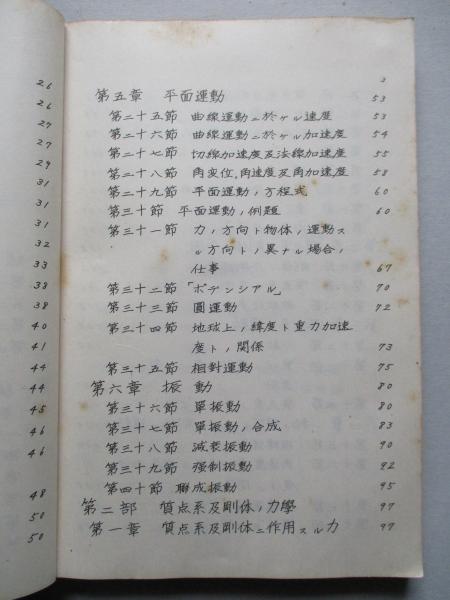 2
第五章 平面運動 53
第二十五節 曲線運動ニ於ケル速度 53
第二十六節 曲線運動ニ於ケル加速度 54
第二十七節 切線加速度及法線加速度 55
第二十八節 角変位,角速度及角加速度 58
第二十九節 平面運動ノ方程式 60
第三十節 平面運動ノ例題 60
第三十一節 力ノ方向ト物体ノ運動ス
ル方向トノ異ナル場合ノ
仕事 67
第三十二節 「ポテンシアル」 70
第三十三節 圓運動 72
第三十四節 地球上ノ緯度ト重力加速
度トノ関係 73
第三十五節 相対運動 75
第六章 振動 80
第三十六節 單振動 80
第三十七節 單振動ノ合成 83
第三十八節 減衰振動 90
第三十九節 强制振動 92
第四十節 聯成振動 95
第二部 質点系及剛体ノ力學 97
第一章 質点系及剛体ニ作用スル力 97
26
26
27
27
29
31
31
31
32
33
33
38
38
40
41
44
44
45
46
46
48
50
50